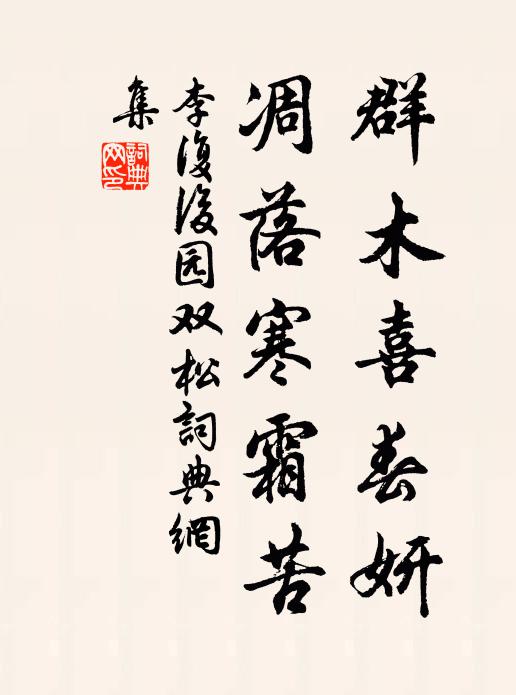 群木喜春妍
凋落寒霜苦
李復後园双松詞典網
集
詞典
网印